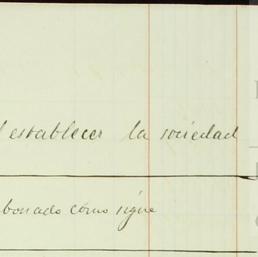 l establecer la sociedad
bonado como sigue